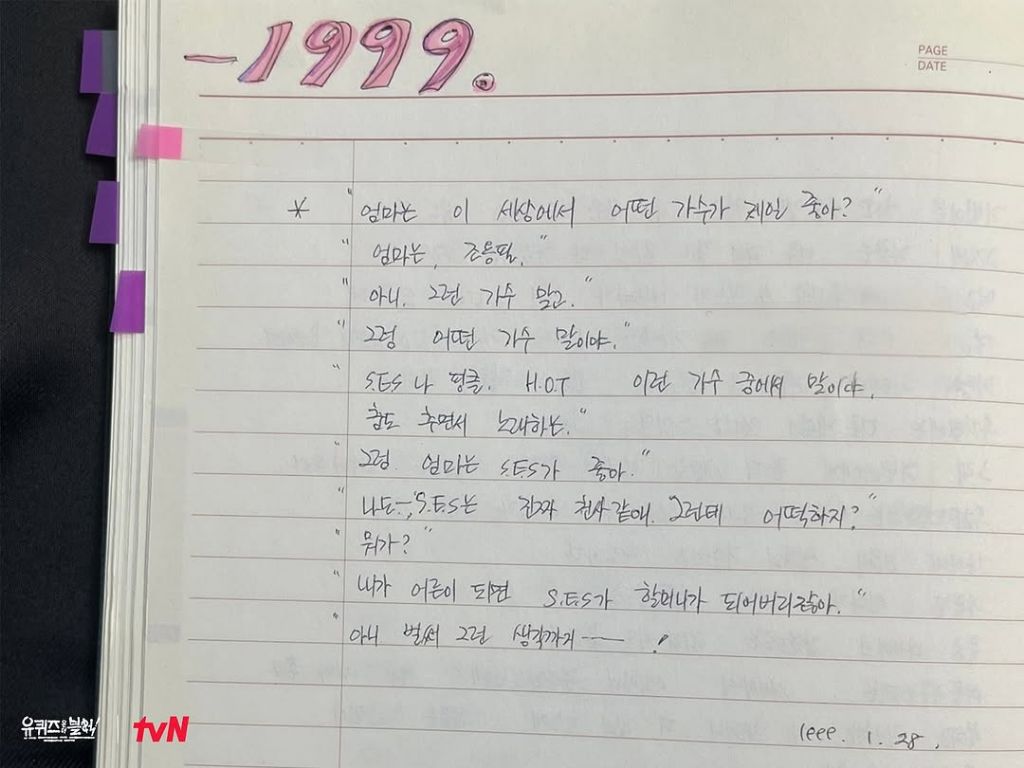 -1999.
PAGE
DATE
* "엄마는 이 세상에서 어떤 가수가 제일 좋아?"
" 엄마는, 조용필."
" 아니. 그런 가수 말고."
" 그럼 어떤 가수 말이야."
" S.E.S 나 핑클. H.O.T 이런 가수 중에서 말이야.
춤도 추면서 노래하는."
" 그럼. 엄마는 S.E.S가 좋아."
" 나도-, S.E.S는 진짜 천사같애. 그런데 어떡하지?"
" 뭐가?"
" 내가 어른이 되면 S.E.S가 할머니가 되어버리잖아."
" 아니 벌써 그런 생각까지 — !
1999. 1. 28.
유퀴즈온더블럭! tvN